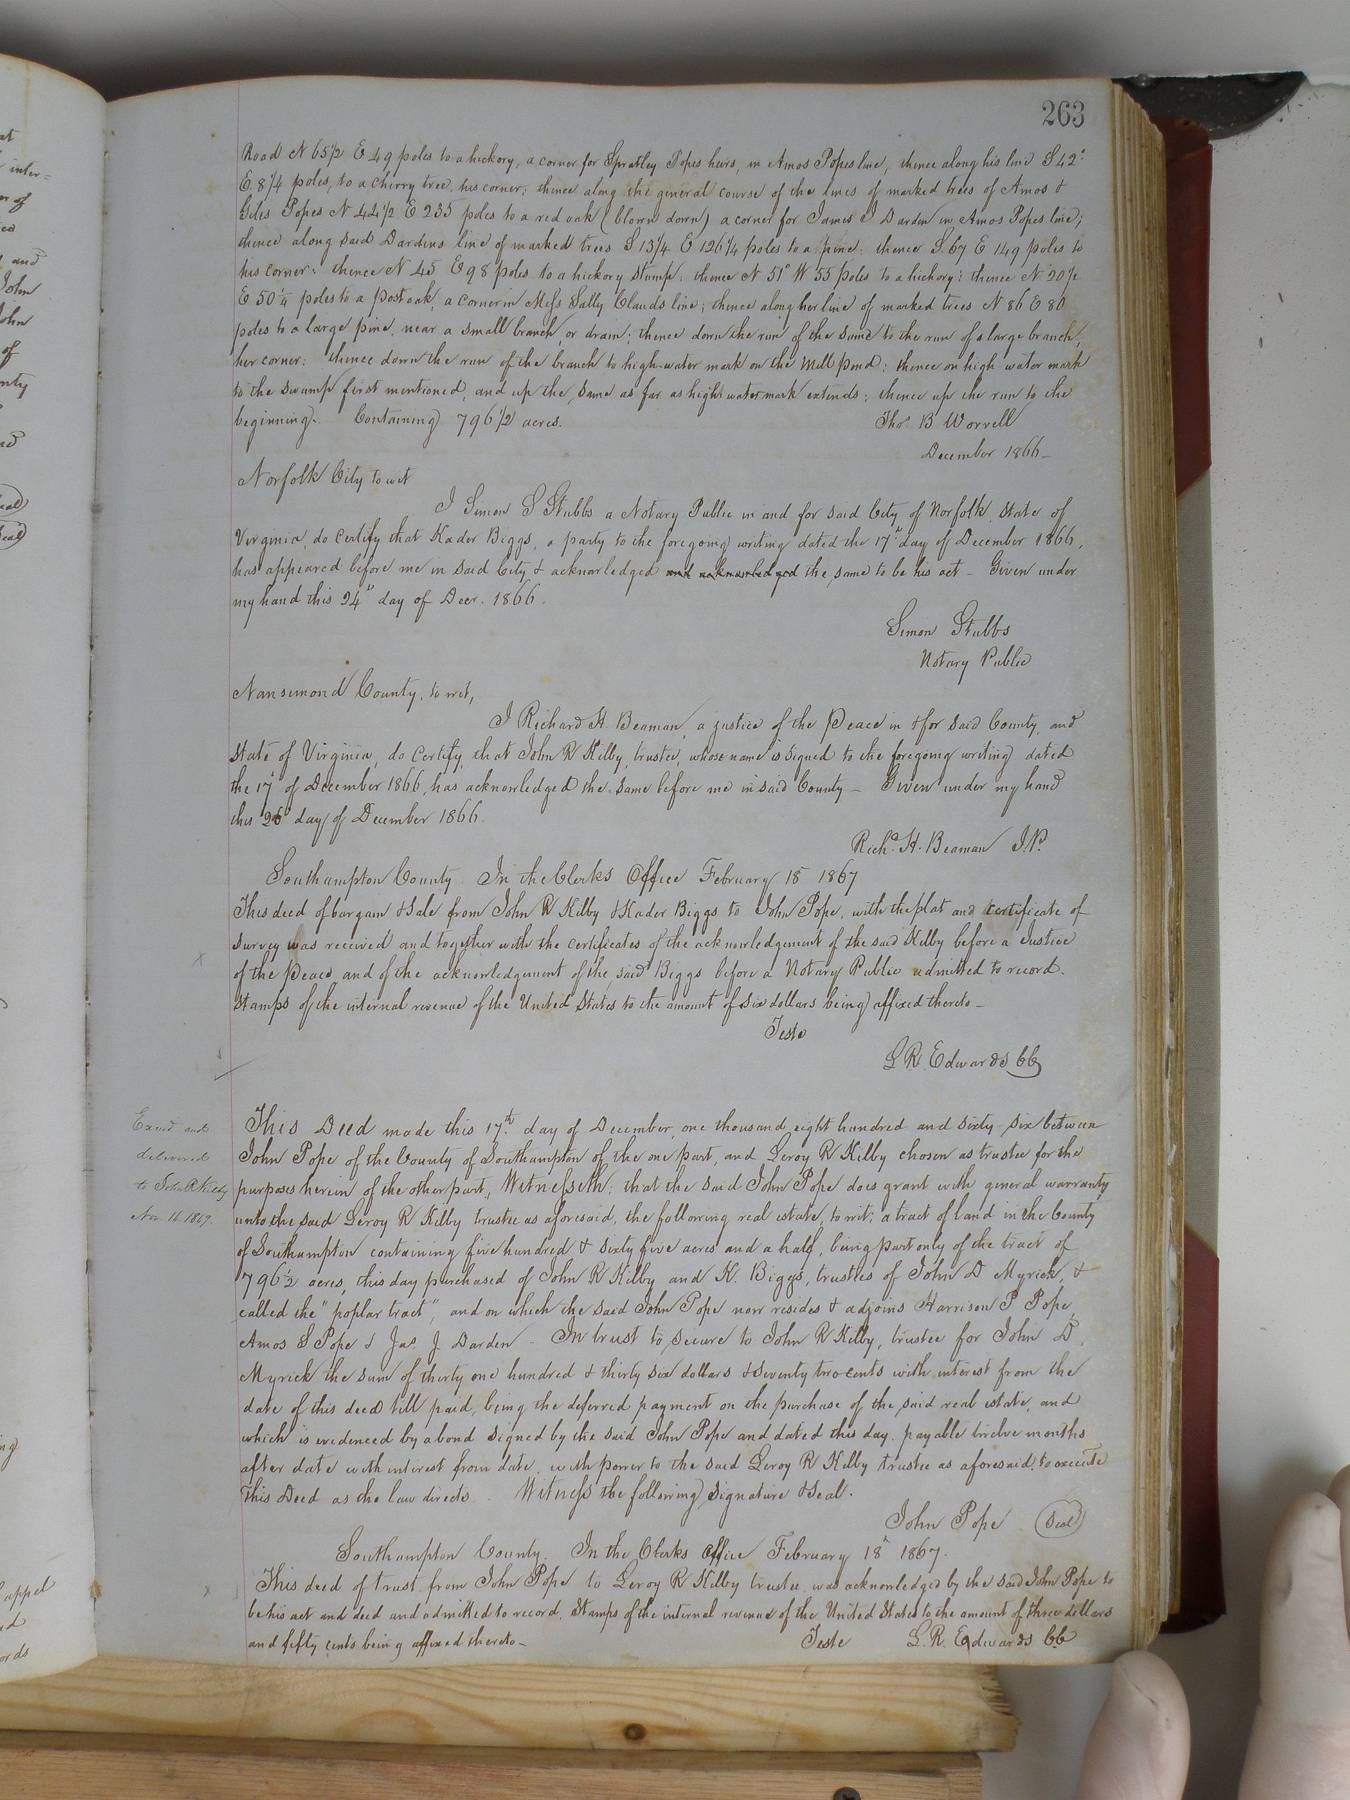 263
Road N 65 1/2 E 49 poles to a hickory, a corner for Spratley Popes heirs, in Amos Popes line, thence along his line S 42°
E 8 1/4 poles, to a cherry tree, his corner; thence along the general course of the lines of marked trees of Amos &
Giles Popes N 42 1/2 E 235 poles to a red oak (blown down) a corner for James J Darden in Amos Popes line;
thence along said Dardens line of marked trees S 13 1/4 E 126 1/4 poles to a pine: thence S 67 E 149 poles to
his corner: thence N 45 E 98 poles to a hickory stump: thence N 51° W 55 poles to a hickory: thence N 20 1/2
E 50 1/4 poles to a post oak, a corner in Miss Sally Clauds line; thence along her line of marked trees N 86 E 80
poles to a large pine, near a small branch, or drain; thence down the run of the same to the run of s large branch,
her corner: thence down the run of the branch to high-water mark on the Mill pond: thence on high water mark
to the swamp first mentioned, and up the same as far as high water mark extends; thence up the run to the
beginning. Containing 796 1/2 acres. Thos B Worrell
December 1866
Norfolk City to wit
I Simon S Stubbs a Notary Public in and for said City of Norfolk, State of
Virginia, do certify that Kader Biggs, a party to the foregoing writing dated the 17th day of December 1866,
has appeared before me in said City & acknowledged and acknowledged the same to be his act - Given under
my hand this 24th day of Decr. 1866.
Simon Stubbs
Notary Public
Nansemond County, to wit,
I Richard H. Beaman, a justice of the Peace in & for said County, and
State of Virginia, do certify, that John R Kilby, trustee, whose name is signed to the foregoing writing dated
the 17th of December 1866, has acknowledged the same before me in said County - Given under my hand
this 26 day of December 1866.
Richd. H. Beaman J.P.
Southampton County In the Clerks Office February 18 1867
This deed of bargain & sale from John R Kilby & Kader Biggs to John Pope, with the plat and certificate of
survey was received and together with the certificates of the acknowledgement of the said Kilby before a Justice
of the peace, and of the acknowledgement of the said Biggs before a Notary Public admitted to record.
Stamps of the internal revenue of the United States to the amount of six dollars being affixed thereto -
Teste
L R Edwards CC
Exd and
delivered
to John R Kilby
Nov 16 1867.
This Deed made this 17th day of December, one thousand eight hundred and sixty-six between
John Pope of the County of Southampton of the one part, and Leroy R Kilby chosen as trustee for the
purposes herein of the other part, Witnesseth: that the said John Pope does grant with general warranty
unto the said Leroy R Kilby trustee as aforesaid, the following real estate, to wit; a tract of land in the County
of Southampton containing five hundred & sixty five acres and a half, being part only of the tract of
796 1/2 acres, this day purchased of John R Kilby and K. Biggs, trustees of John D Myrick, &
called the "poplar tract", and on which the said John Pope now resides & adjoins Harrison P Pope,
Amos S Pope & Jas. J. Darden - In trust to secure to John R Kilby, trustee for John D.
Myrick the sum of thirty one hundred & thirty six dollars & seventy two cents with interest from the
date of this deed till paid, being the deferred payment on the purchase of the said real estate, and
which is evidenced by a bond signed by the said John Pope and dated this day, payable twelve months
after date with interest from date, with power to the said Leroy R Kilby trustee as aforesaid, to execute
this Deed as the law directs. Witness the following signature & seal.
John Pope (Seal)
Southampton County. In the Clerks Office February 18th 1867.
This deed of trust from John Pope to Leroy R Kilby trustee was acknowledged by the said John Pope to
be his act and deed and admitted to record, Stamps of the internal revenue of the United States to the amount of three dollars
and fifty cents being affixed thereto - Teste L. R. Edwards CC